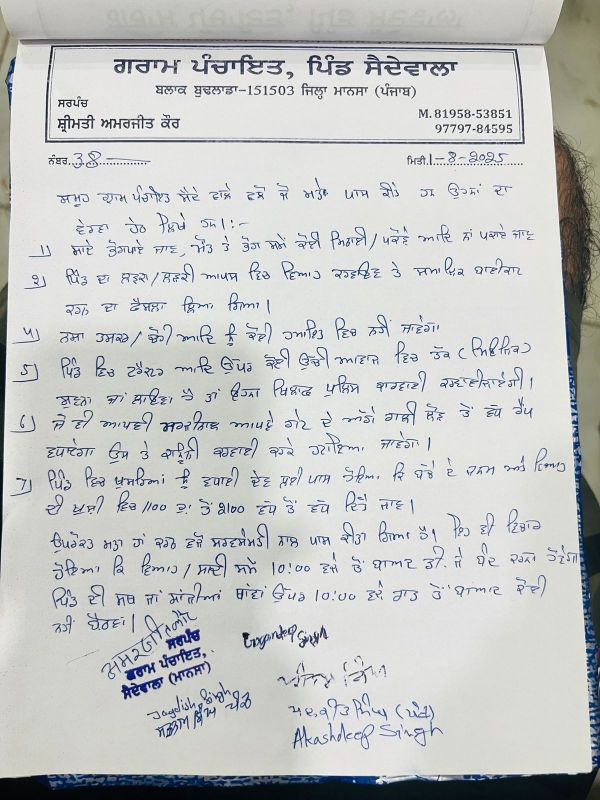 ਗਰਾਮ ਪੰਚਾਇਤ, ਪਿੰਡ ਸੈਦੇਵਾਲਾ
ਬਲਾਕ ਬੁਢਲਾਡਾ-151503 ਜਿਲ੍ਹਾ ਮਾਨਸਾ (ਪੰਜਾਬ)
ਸਰਪੰਚ
ਸ਼੍ਰੀਮਤੀ ਅਮਰਜੀਤ ਕੌਰ
M.81958-53851
97797-84595
ਨੰਬਰ 38 ਮਿਤੀ 1-8-2025
ਗ੍ਰਾਮ ਪੰਚਾਇਤ ਸੈਦੇ ਵਾਲਾ ਵਲੋਂ ਜੋ ਮਤੇ ਪਾਸ ਕੀਤੇ ਹਨ ਉਹਨਾਂ ਦਾ
ਵੇਰਵਾ ਹੇਠ ਲਿਖੇ ਹਨ।:-
1) ਸਾਦੇ ਭੋਗ ਪਾਏ ਜਾਣ, ਮੌਤ ਤੇ ਭੋਗ ਸਮੇਂ ਕੋਈ ਮਿਠਾਈ/ਪਕੌੜੇ ਆਦਿ ਨਾਂ ਪਕਾਏ ਜਾਣ
2) ਪਿੰਡ ਦਾ ਲੜਕਾ/ਲੜਕੀ ਆਪਸ ਵਿਚ ਵਿਆਹ ਕਰਵਾਉਣ ਤੇ ਸਮਾਜਿਕ ਬਾਈਕਾਟ
ਕਰਨ ਦਾ ਫੈਸਲਾ ਲਿਆ ਗਿਆ।
4) ਨਸ਼ਾ ਤਸਕਰ/ਚੋਰੀ ਆਦਿ ਨੂੰ ਕੋਈ ਹਮਾਇਤ ਵਿਚ ਨਹੀਂ ਜਾਵੇਗਾ
5) ਪਿੰਡ ਵਿਚ ਟਰੈਕਟਰ ਆਦਿ ਉਪਰ ਕੋਈ ਉਚੀ ਆਵਾਜ਼ ਵਿਚ ਡੈਕ (ਮਿਊਜ਼ਿਕ)
ਜਾਂ ਤਾਂ ਉਹਨਾਂ ਖਿਲਾਫ਼ ਪੁਲਿਸ ਕਾਰਵਾਈ ਕਰਵਾਈ ਜਾਵੇਗੀ।
6) ਜੋ ਵੀ ਆਪਣੀ ਆਪਣੇ ਗੇਟ ਦੇ ਅੱਗੇ ਗਲੀ ਲੈਵਲ ਤੋਂ ਵੱਧ ਰੈਂਪ
ਬਣਾਏਗਾ ਉਸ ਤੇ ਕਾਨੂੰਨੀ ਕਾਰਵਾਈ ਕਰਕੇ ਹਟਾਇਆ ਜਾਵੇਗਾ।
7) ਪਿੰਡ ਵਿਚ ਖੁਸਰਿਆਂ ਨੂੰ ਵਧਾਈ ਦੇਣ ਲਈ ਪਾਸ ਹੋਇਆ ਕਿ ਬੱਚੇ ਦੇ ਜਨਮ ਅਤੇ ਵਿਆਹ
ਦੀ ਖੁਸ਼ੀ ਵਿਚ 1100 ਰੁ: ਤੋਂ 2100 ਵੱਧ ਤੋਂ ਵੱਧ ਦਿੱਤੇ ਜਾਣ।
ਉਪਰੋਕਤ ਮਤਾ ਹਾਂ ਕਰਨ ਵਲੋਂ ਸਰਵਸੰਮਤੀ ਨਾਲ ਪਾਸ ਕੀਤਾ ਗਿਆ ਹੈ। ਇਹ ਵੀ ਵਿਚਾਰ
ਹੋਇਆ ਕਿ ਵਿਆਹ/ਸ਼ਾਦੀ ਸਮੇਂ 10:00 ਵਜੇ ਤੋਂ ਬਾਅਦ ਡੀ.ਜੇ ਬੰਦ ਕਰਨਾ ਹੋਵੇਗਾ
ਪਿੰਡ ਦੀ ਸੱਥ ਜਾਂ ਸਾਂਝੀਆਂ ਥਾਂਵਾਂ ਉਪਰ 10:00 ਵਜੇ ਰਾਤ ਤੋਂ ਬਾਅਦ ਕੋਈ
ਨਹੀਂ ਬੈਠੇਗਾ।
ਅਮਰਜੀਤ ਕੌਰ
ਸਰਪੰਚ
ਗਰਾਮ ਪੰਚਾਇਤ,
ਸੈਦੇਵਾਲਾ (ਮਾਨਸਾ)
Gagandeep Singh
Jagdish Singh
ਸਤਨਾਮ ਸਿੰਘ ਪੰਚ
Akashdeep Singh